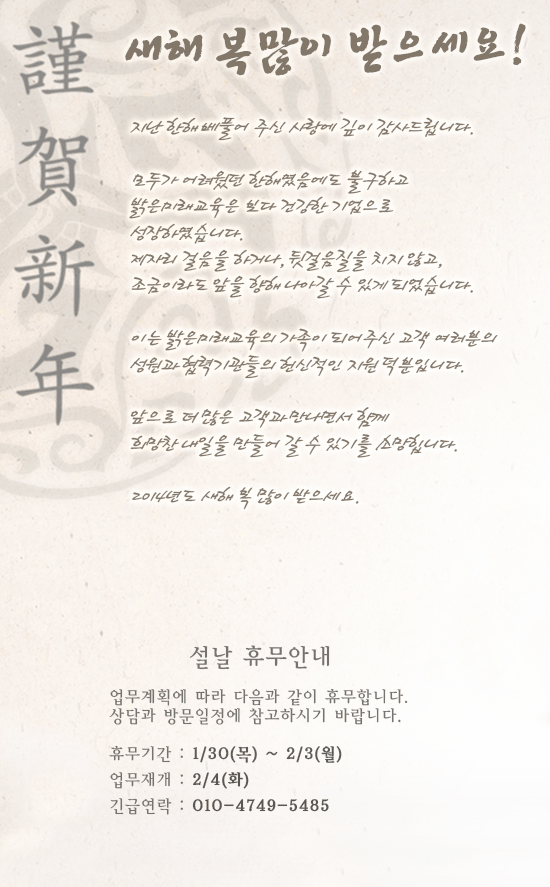 謹賀新年
새해 복 많이 받으세요!
지난 한해 베풀어 주신 사랑에 깊이 감사드립니다.
모두가 어려웠던 한해였음에도 불구하고
밝은미래교육은 보다 건강한 기업으로
성장하였습니다.
제자리 걸음을 하거나, 뒷걸음질을 치지 않고,
조금이라도 앞을 향해 나아갈 수 있게 되었습니다.
이는 밝은미래교육의 가족이 되어주신 고객 여러분의
성원과 협력기관들의 헌신적인 지원 덕분입니다.
앞으로 더 많은 고객과 만나면서 함께
희망찬 내일을 만들어 갈 수 있기를 소망합니다.
2014년도 새해 복 많이 받으세요.
설날 휴무안내
업무계획에 따라 다음과 같이 휴무합니다.
상담과 방문일정에 참고하시기 바랍니다.
휴무기간 : 1/30(목) ~ 2/3(월)
업무재개 : 2/4(화)
긴급연락 : 010-4749-5485